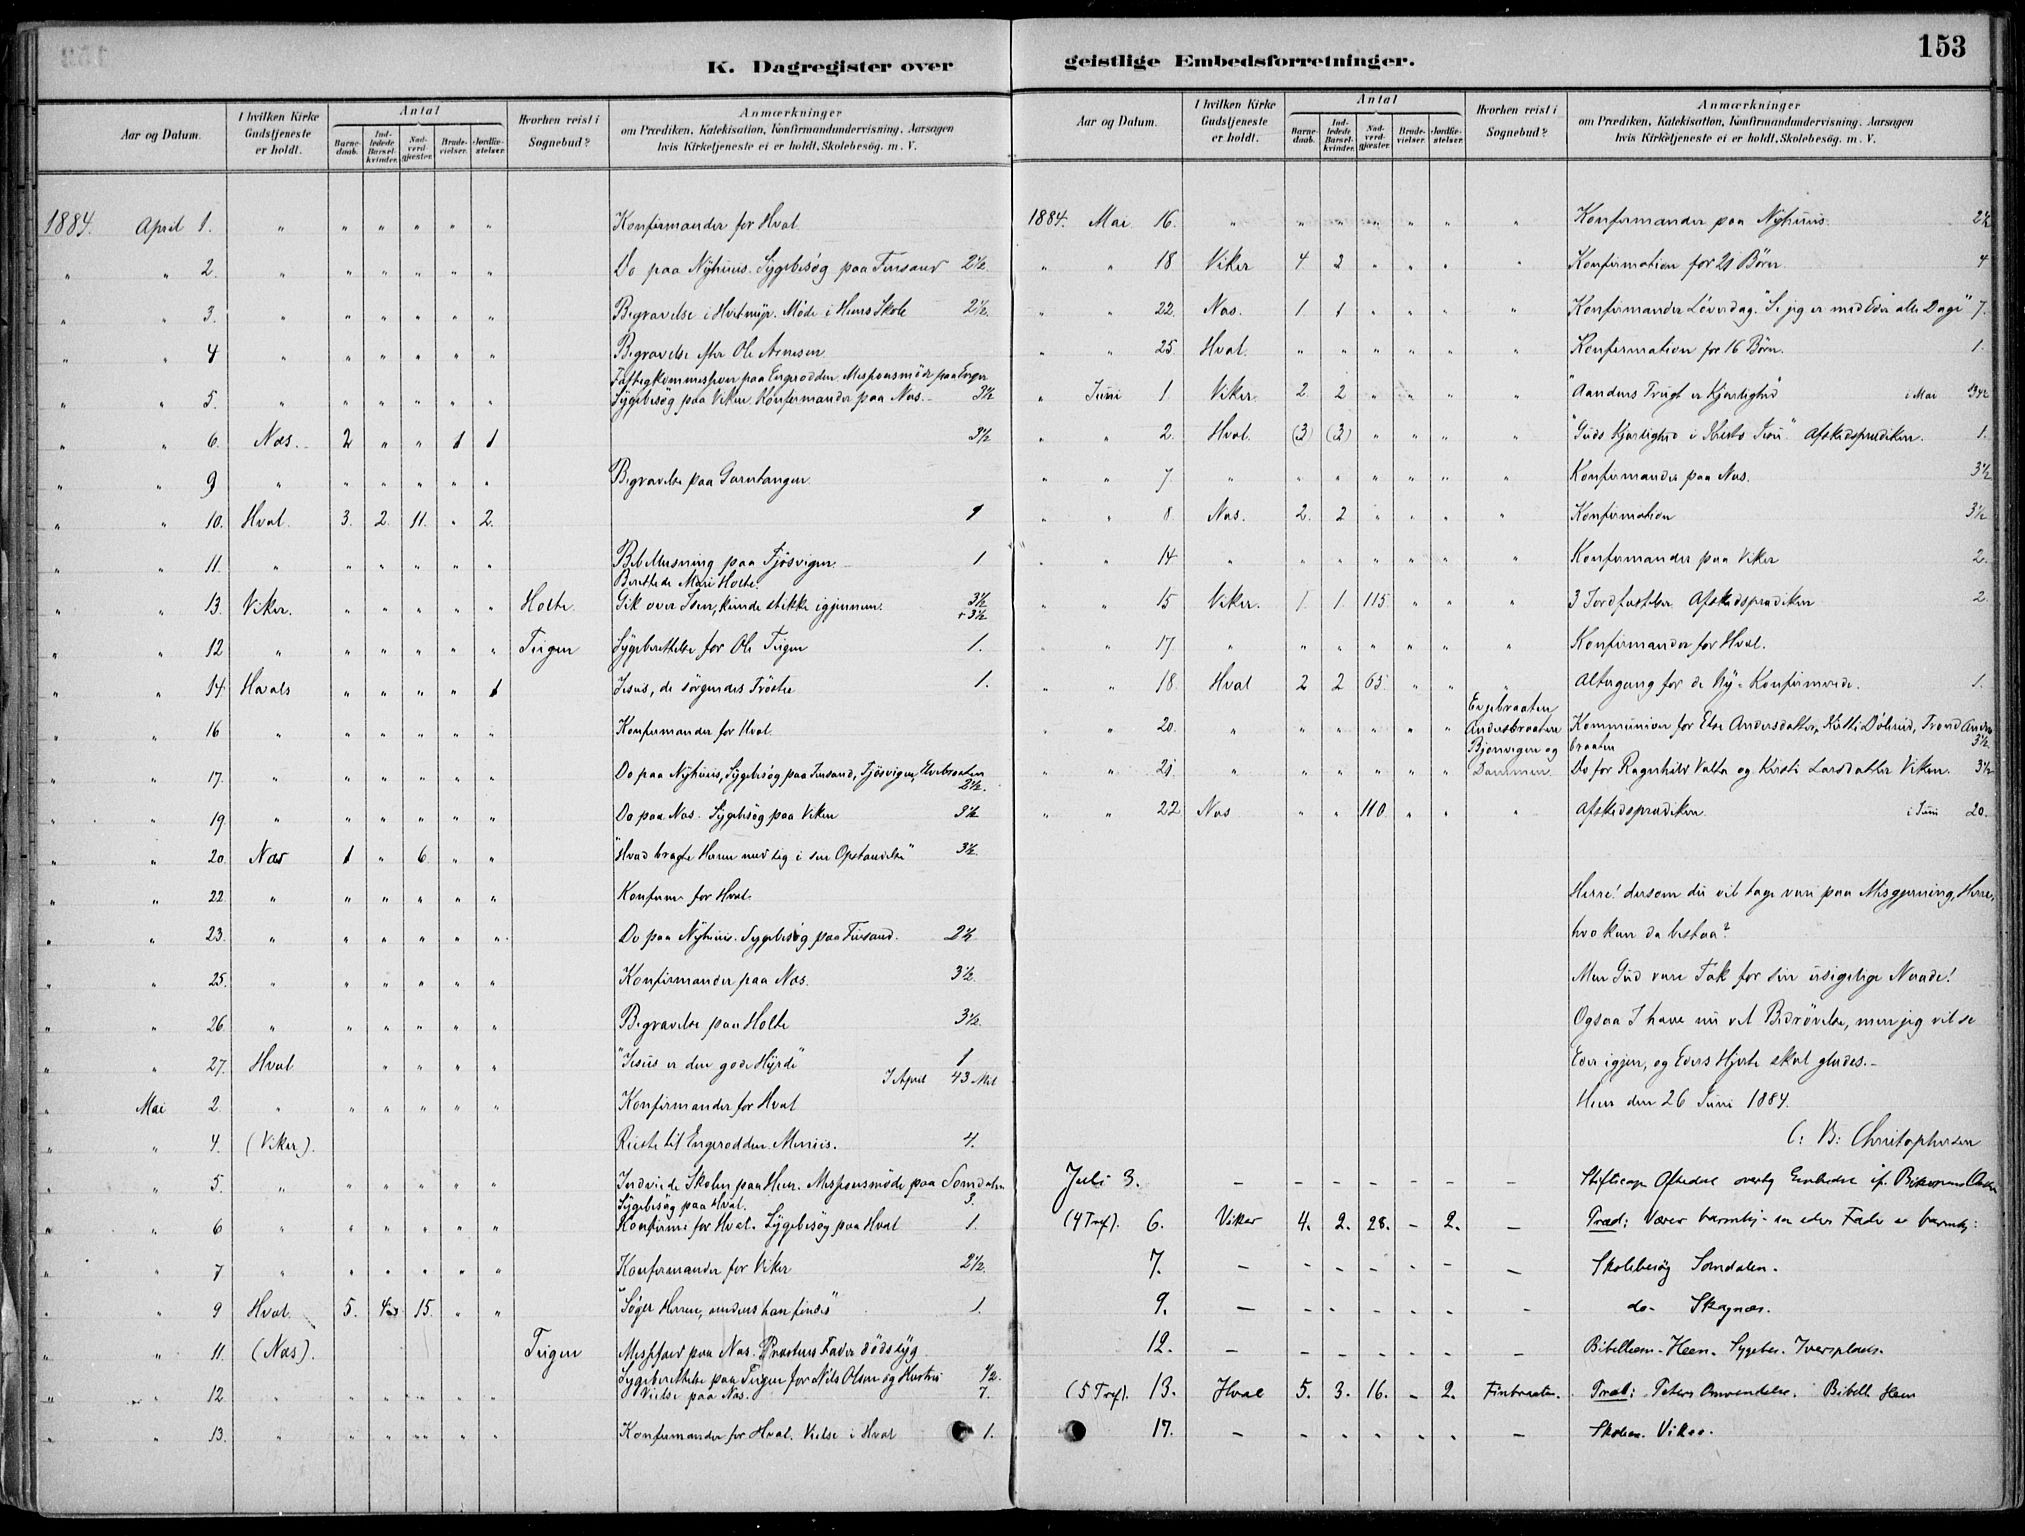 153
K. Dagregister over geistlige Embedsforretninger.
Aar og Datum. I hvilken Kirke Gudstjeneste er holdt. Antal Barnedaab. Indledede Barselkvinder. Nadverdgjæster. Brudevielser. Jordfæstelser. Hvorhen reist i Sognebud? Anmærkninger om Prædiken, Katekisation, Konfirmandundervisning, Aarsagen hvis Kirketjeneste ei er holdt, Skolebesøg. m. V.
1884. April 1. " " " " " " Konfirmander for Hval
" " 2. " " " " " " Do paa Nyhuus. Sygebesøg paa Finsand 2½
" " 3. " " " " " " Begravelse i Hvitmyr. Møde i Heens Skole 2½.
" " 4 " " " " " " Begravelse efter Ole Arnesen
Fattigkommission paa Engerodden. Missionsmøde paa Enger
" " 5. " " " " " " Sygebesøg paa Viken. Konfirmander paa Næs. 3½
" " 6. Næs. 2 " " 1 1 3½
" " 9 " " " " " " Begravelse paa Garntangen
" " 10. Hval. 3. 2. 11. " 2. 1
" " 11. " " " " " " Bibellæsning paa Fjøsvigen 1
Berettede Mari Holte.
" " 13. Viker. " " " " " Holte. Gik over Isen, kunde stikke igjennem. 3½ + 3½
" " 12 " " " " " " Tirgen Sygeberettelse for Ole Tirgen 1.
" " 14. Hvals " " " " 1 Jesus, de sørgendes Trøster 1.
" " 16 " " " " " " Konfirmander for Hval
" " 17. " " " " " " Do paa Nyhuus, Sygebesøg paa Finsand, Fjøsvigen, Elvebraaten 2½.
" " 19. " " " " " " Do paa Næs. Sygebesøg paa Viken 3½
" " 20. Næs 1 " 6 " " "Hvad bragte Herren med sig i sin Opstandelse" 3½
" " 22. " " " " " " Konfirm. for Hval.
" " 23. " " " " " " Do paa Nyhuus. Sygebesøg paa Finsand. 2½
" " 25. " " " " " " Konfirmander paa Næs. 3½.
" " 26. " " " " " " Begravelse paa Holte 3½.
" " 27. Hval " " " " "Jesus er den gode Hyrde" 1
I April 43 Mil
" Mai 2. " " " " " " Konfirmander for Hval
" " 4. (Viker). Reiste til Engerodden. 4.
" " 5. " " " " " " Indviede Skolen paa Heen. Missionsmøde paa Somdalen 3.
Sygebesøg paa Hval.
" " 6 " " " " " " Konfirm. for Hval. Sygebesøg paa Hval 1.
" " 7 " " " " " " Konfirmander for Viker 2½.
" " 9 Hval. 5. 4 15. " " "Søger Herren, medens han findes" 1.
" " 11. (Næs). Tirgen paa Næs. Præstens Fader dødssyg
Sygeberettelse paa Tirgen for Nils Olsen og Hustru ½.
" " 12. " " " " " " Vielse paa Næs. 7.
" " 13. " " " " " " Konfirmander for Hval. Vielse i Hval 1.
Aar og Datum. I hvilken Kirke Gudstjeneste er holdt. Antal Barnedaab. Indledede Barselkvinder. Nadverdgjæster. Brudevielser. Jordfæstelser. Hvorhen reist i Sognebud? Anmærkninger om Prædiken, Katekisation, Konfirmandundervisning, Aarsagen hvis Kirketjeneste ei er holdt, Skolebesøg. m. V.
1884. Mai 16. " " " " " " " Konfirmander paa Nyhuus. 2½
" " 18. Viker 4 2 " " " " Konfirmation for 21 Børn. 4
" " 22. Næs. 1. 1 " " " " Konfirmander Løverdag. "Se jeg er med Eder alle Dage" 7.
" " 25. Hval. " " " " " " Konfirmation for 16 Børn. 1.
" Juni 1. Viker. 2 2 " " " " "Aandens Frugt er Kjærlighed" i Mai
" " 2. Hval. (3) (3) " " " " "Guds Kjærlighed i Kristo Jesu" Afskedsprædiken. 1.
" " 7. " " " " " " " Konfirmander paa Næs. 3½
" " 8 Næs. 2. 2 " " " " Konfirmation 3½
" " 14. " " " " " " " Konfirmander paa Viker 2.
" " 15 Viker. 1. 1. 115. " " " 3 Jordfæstelser. Afskedsprædiken 2.
" " 17. " " " " " " " Konfirmander for Hval.
" " 18. Hval 2 2 65. " " " Altergang for de Ny-Konfirmerede. 1.
" " 20. " " " " " " Evjebraaten Andersbraaten Kommunion for Else Andersdatter, Kristi Dølerud, Trond Andersbraaten 3½.
" " 21. " " " " " " Bjønvigen og Dammen. Do for Ragnhild Valta og Kirsti Larsdatter Viken. 3½
" " 22 Næs " " 110. " " " Afskedsprædiken i Juni 20.
Herre! dersom du vil tage vare paa Misgjerning, Herre,
hvo kan da bestaa?
Men Gud være Tak for sin usigelige Naade!
Ogsaa I have nu vel Bedrøvelse, men jeg vil se
Eder igjen, og Eders Hjerte skal glædes.-
Heen den 26 Juni 1884.
C: B: Christophersen
Juli 3. - - - - - - - Stiftscap. Oftedal overtog Embedet
(4 Tref). 6. Viker 4. 2. 28. - 2. - Præd: Værer barmhj. som eders Fader er barmhj:
7. - - - - - - - Skolebesøg Somdalen.
9. - - - - - - - do- Skagnæs.
12. - - - - - - - Bibellæsn. Heen. Sygebes. Iversplads.
(5 Tref). 13. Hval 5. 3. 16. - 2. Finbraaten. Præd: Peters Omvendelse. Bibell. Heen
17. - - - - - - - Skolen. Viker.